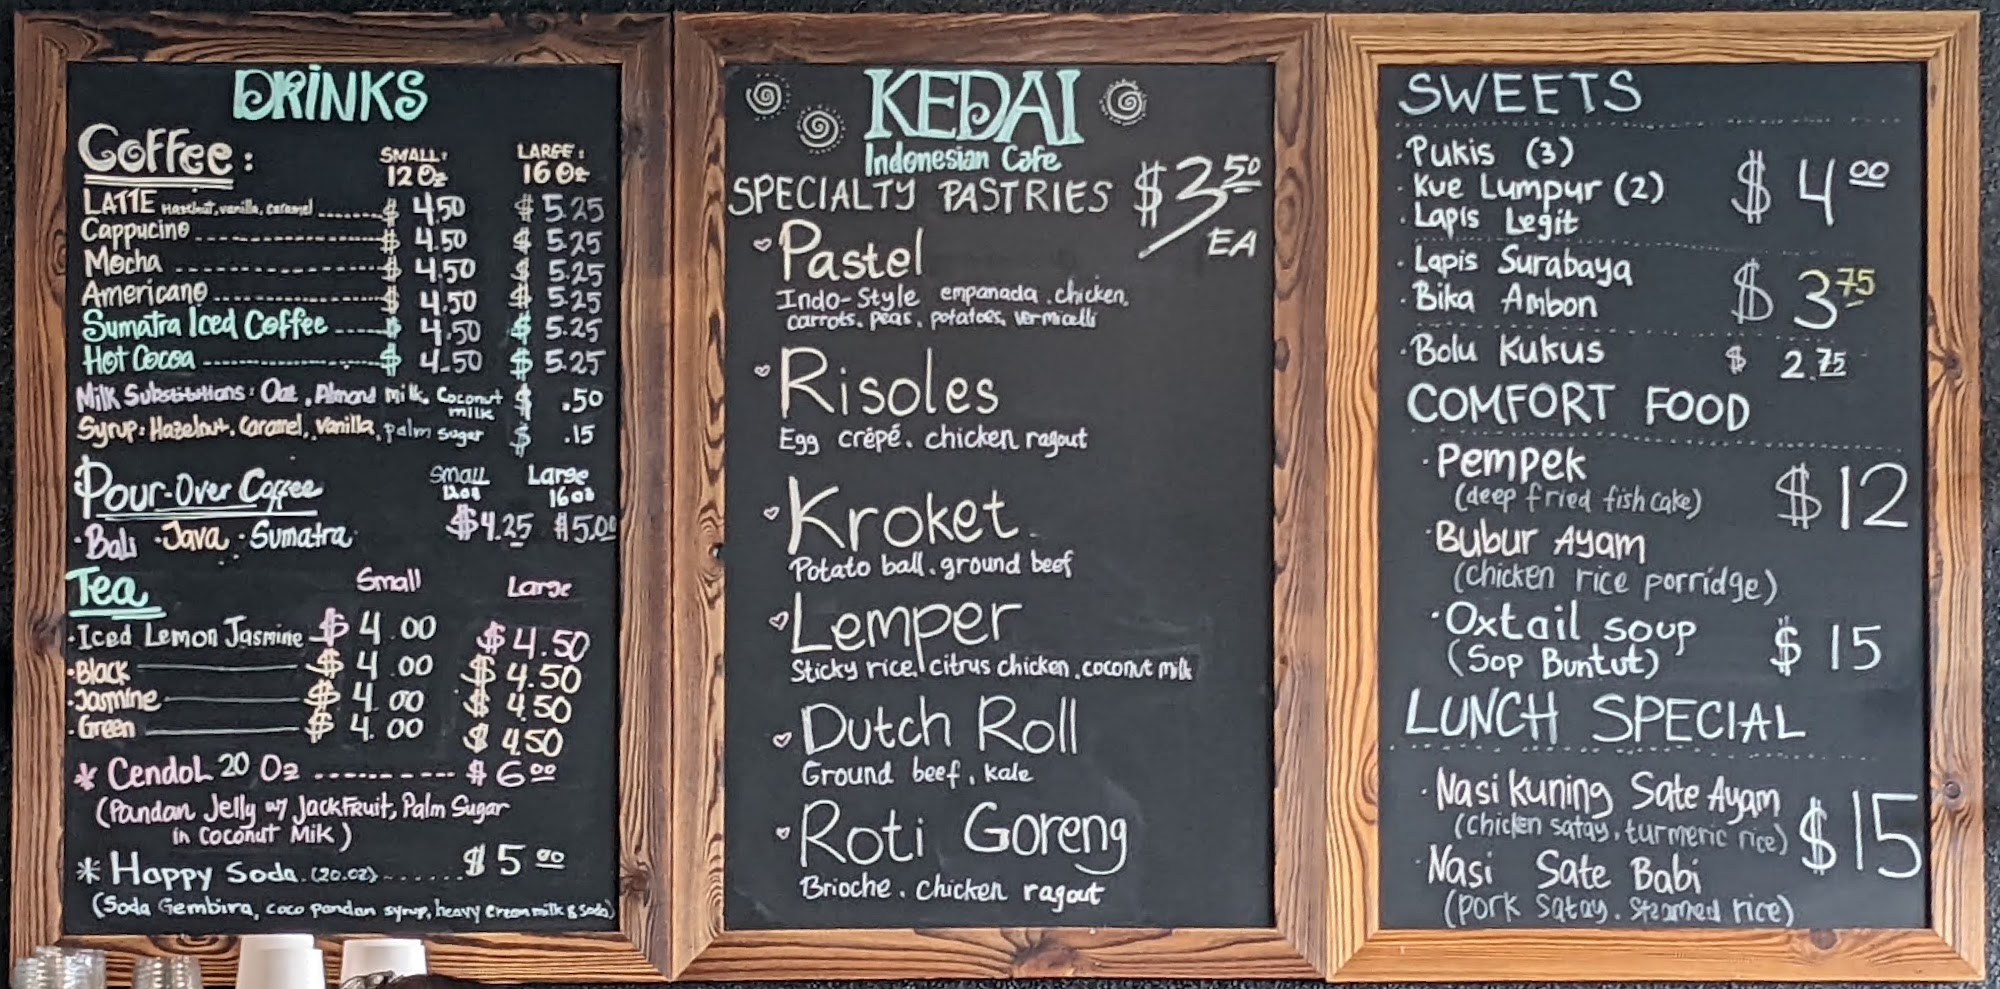 DRINKS
Coffee:
SMALL: LARGE:
12 Oz 16 Oz
LATTE Hazelnut, vanilla, caramel ....... $ 4.50 $ 5.25
Cappucino ....... $ 4.50 $ 5.25
Mocha ....... $ 4.50 $ 5.25
Americano ....... $ 4.50 $ 5.25
Sumatra Iced Coffee ..... $ 4.50 $ 5.25
Hot Cocoa ....... $ 4.50 $ 5.25
Milk Substitutions: Oat, Almond milk, Coconut milk $ .50
Syrup: Hazelnut, Caramel, Vanilla, palm sugar $ .15
Pour-Over Coffee
Small Large
12oz 16oz
· Bali · Java · Sumatra $4.25 $5.00
Tea Small Large
· Iced Lemon Jasmine $ 4.00 $ 4.50
· Black $ 4.00 $ 4.50
· Jasmine $ 4.00 $ 4.50
· Green $ 4.00 $ 4.50
* Cendol 20 Oz .......... $ 6.00
(Pandan Jelly w/ Jackfruit, Palm Sugar
in Coconut Milk)
* Happy Soda (20.oz) ...... $ 5.00
(Soda Gembira, coco pandan syrup, heavy cream milk & soda)
KEDAI
Indonesian Cafe
SPECIALTY PASTRIES $3.50 EA
Pastel
Indo-Style empanada. chicken,
carrots, peas, potatoes, vermicelli
Risoles
Egg crêpé. chicken ragout
Kroket
Potato ball. ground beef
Lemper
Sticky rice, citrus chicken, coconut milk
Dutch Roll
Ground beef, kale
Roti Goreng
Brioche. chicken ragout
SWEETS
· Pukis (3)
· Kue Lumpur (2) $ 4.00
· Lapis Legit
· Lapis Surabaya $ 3.75
· Bika Ambon
· Bolu Kukus $ 2.75
COMFORT FOOD
· Pempek $12
(deep fried fish cake)
· Bubur Ayam
(chicken rice porridge)
· Oxtail soup $ 15
(Sop Buntut)
LUNCH SPECIAL
· Nasi Kuning Sate Ayam $15
(chicken satay, turmeric rice)
· Nasi Sate Babi
(pork satay. steamed rice)